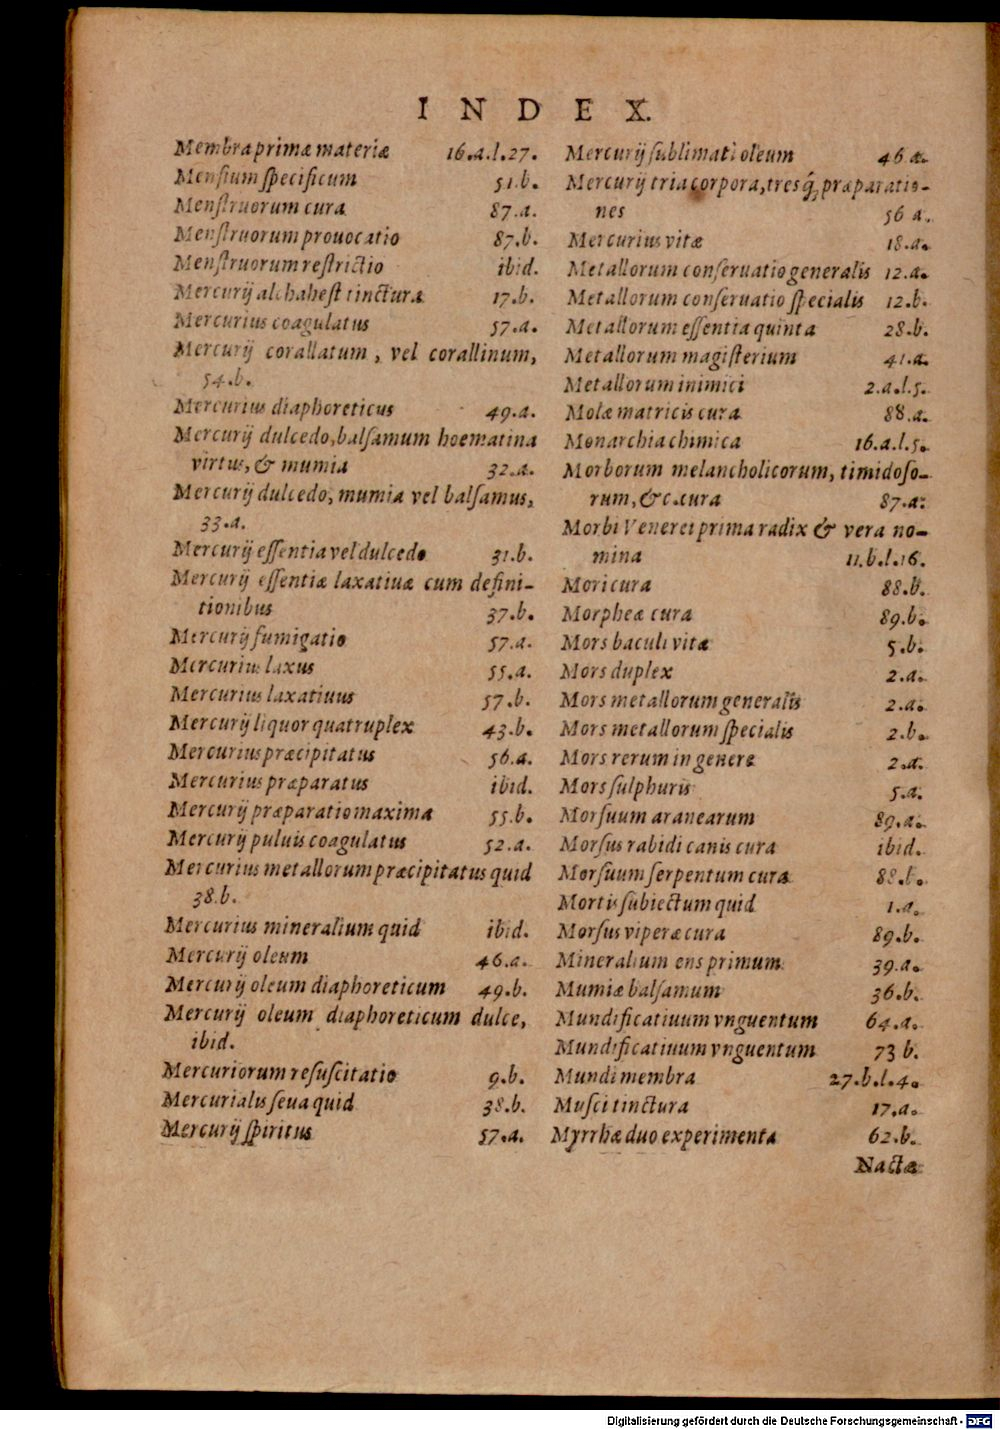 INDEX.
Membra primæ materiæ 16.a.l.27.
Mensium specificum 51.b.
Menstruorum cura 87.a.
Menstruorum prouocatio 87.b.
Menstruorum restrictio ibid.
Mercurij alchahest tinctura 17.b.
Mercurius coagulatus 57.a.
Mercurij corallatum, vel corallinum,
54.b.
Mercurius diaphoreticus 49.a.
Mercurij dulcedo, balsamum hoematina
virtus, & mumia 32.a.
Mercurij dulcedo, mumia vel balsamus,
33.a.
Mercurij essentia vel dulcedo 31.b.
Mercurij essentiæ laxatiuæ cum defini-
tionibus 37.b.
Mercurij fumigatio 57.a.
Mercurius laxus 55.a.
Mercurius laxatiuus 57.b.
Mercurij liquor quatruplex 43.b.
Mercurius præcipitatus 56.a.
Mercurius præparatus ibid.
Mercurij præparatio maxima 55.b.
Mercurij puluis coagulatus 52.a.
Mercurius metallorum præcipitatus quid
38.b.
Mercurius mineralium quid ibid.
Mercurij oleum 46.a.
Mercurij oleum diaphoreticum 49.b.
Mercurij oleum diaphoreticum dulce,
ibid.
Mercuriorum resuscitatio 9.b.
Mercurialis seua quid 38.b.
Mercurij spiritus 57.a.
Mercurij sublimati oleum 46 a.
Mercurij tria corpora, tresq́; præparatio-
nes 56 a.
Mercurius vitæ 18.a.
Metallorum conseruatio generalis 12.a.
Metallorum conseruatio specialis 12.b.
Metallorum essentia quinta 28.b.
Metallorum magisterium 41.a.
Metallorum inimici 2.a.l.5.
Molæ matricis cura 88.a.
Monarchia chimica 16.a.l.5.
Morborum melancholicorum, timidoso-
rum, &c. cura 87.a.
Morbi Venerei prima radix & vera no-
mina 11.b.l.16.
Mori cura 88.b.
Morpheæ cura 89.b.
Mors baculi vitæ 5.b.
Mors duplex 2.a.
Mors metallorum generalis 2.a.
Mors metallorum specialis 2.b.
Mors rerum in genere 2.a.
Mors sulphuris 5.a.
Morsuum aranearum 89.a.
Morsus rabidi canis cura ibid.
Morsuum serpentum cura 88.b.
Mortis subiectum quid 1.a.
Morsus viperæ cura 89.b.
Mineralium ens primum 39.a.
Mumiæ balsamum 36.b.
Mundificatiuum vnguentum 64.a.
Mundificatiuum vnguentum 73 b.
Mundi membra 27.b.l.4.
Musci tinctura 17.a.
Myrrhæ duo experimenta 62.b.
Nactæ
Digitalisierung gefördert durch die Deutsche Forschungsgemeinschaft - DFG